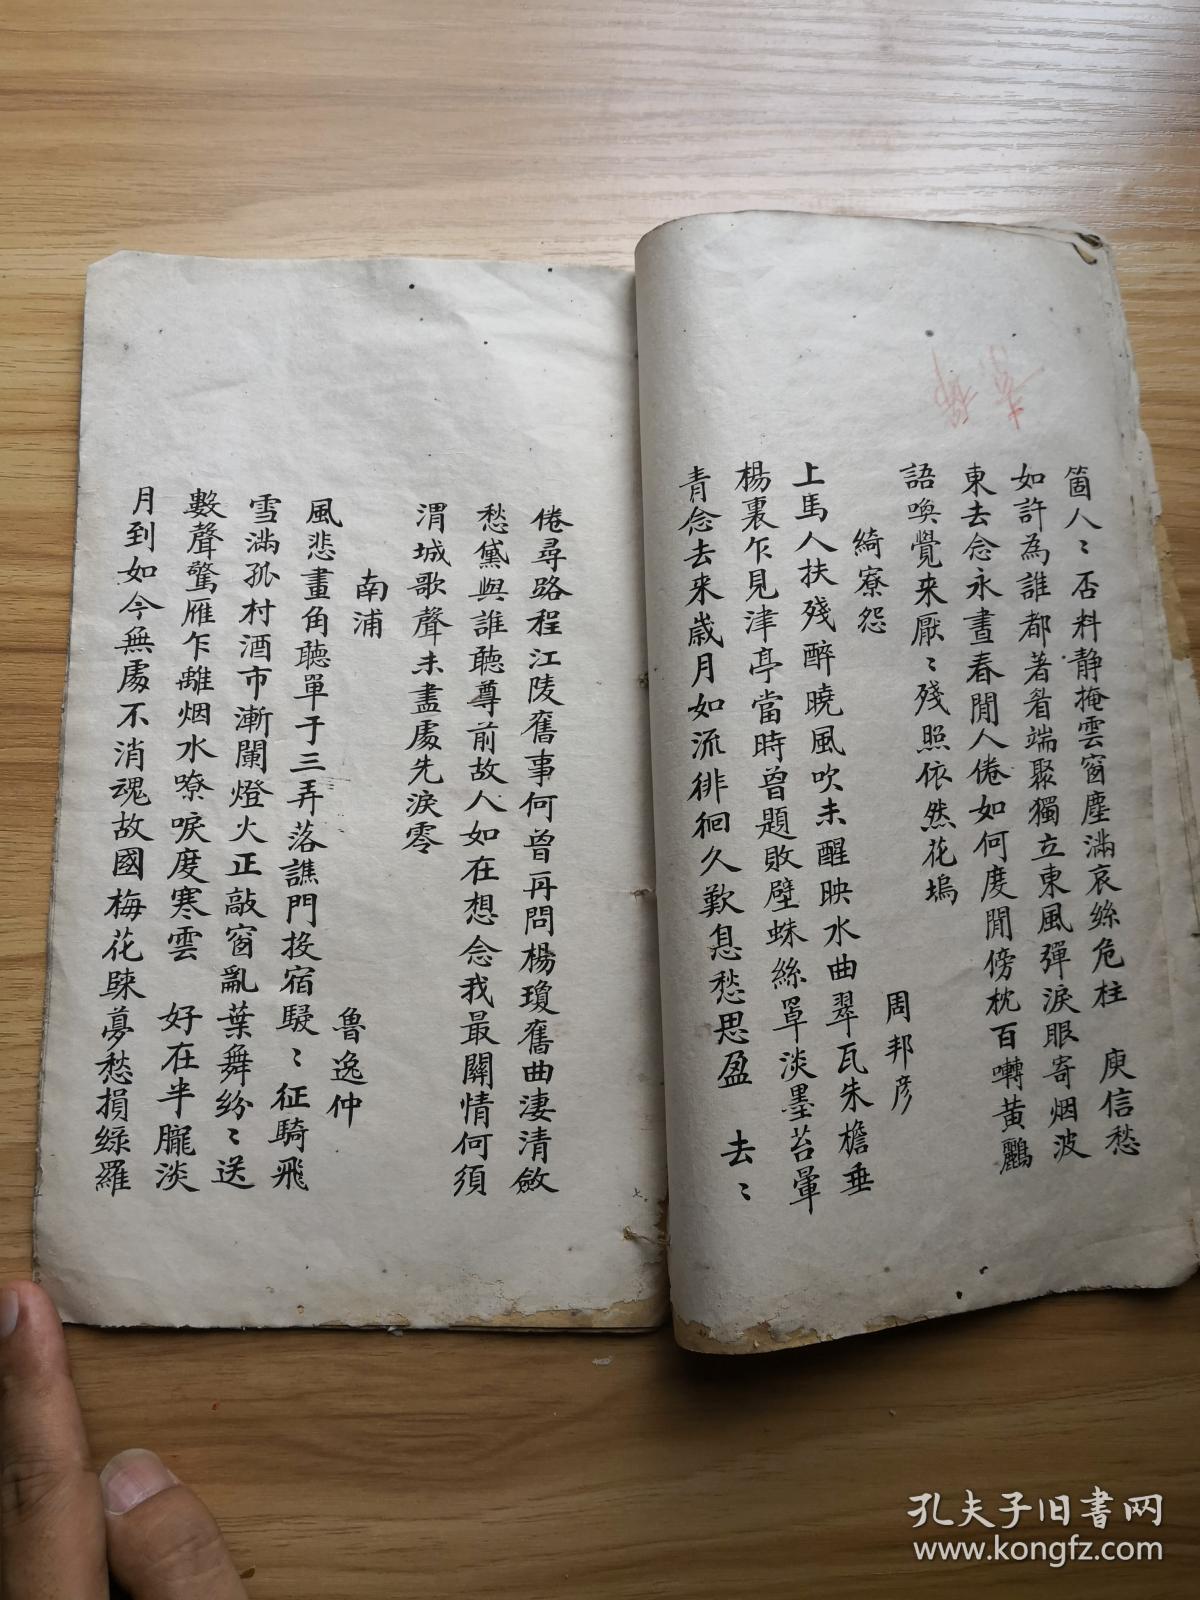 箇人〻否料静掩雲窗塵滿哀絲危柱　庾信愁
如許為誰都著眉端聚獨立東風彈淚眼寄烟波
東去念永晝春閒人倦如何度閒傍枕百囀黃鸝
語喚覺来厭〻殘照依然花塢
綺寮怨　周邦彦
上馬人扶殘醉曉風吹未醒映水曲翠瓦朱檐垂
楊裏乍見津亭當時曾題敗壁蛛絲罩淡墨苔暈
青念去来歲月如流徘徊久歎息愁思盈　去〻
倦尋路程江陵舊事何曾再問楊瓊舊曲淒清斂
愁黛與誰聽尊前故人如在想念我最關情何須
渭城歌聲未盡處先淚零
南浦　魯逸仲
風悲畫角聽單于三弄落譙門投宿駸〻征騎飛
雪滿孤村酒市漸闌燈火正敲窗亂葉舞紛〻送
數聲驚雁乍離烟水嘹唳度寒雲　好在半朧淡
月到如今無處不消魂故國梅花歸夢愁損綠羅
孔夫子旧书网
www.kongfz.com